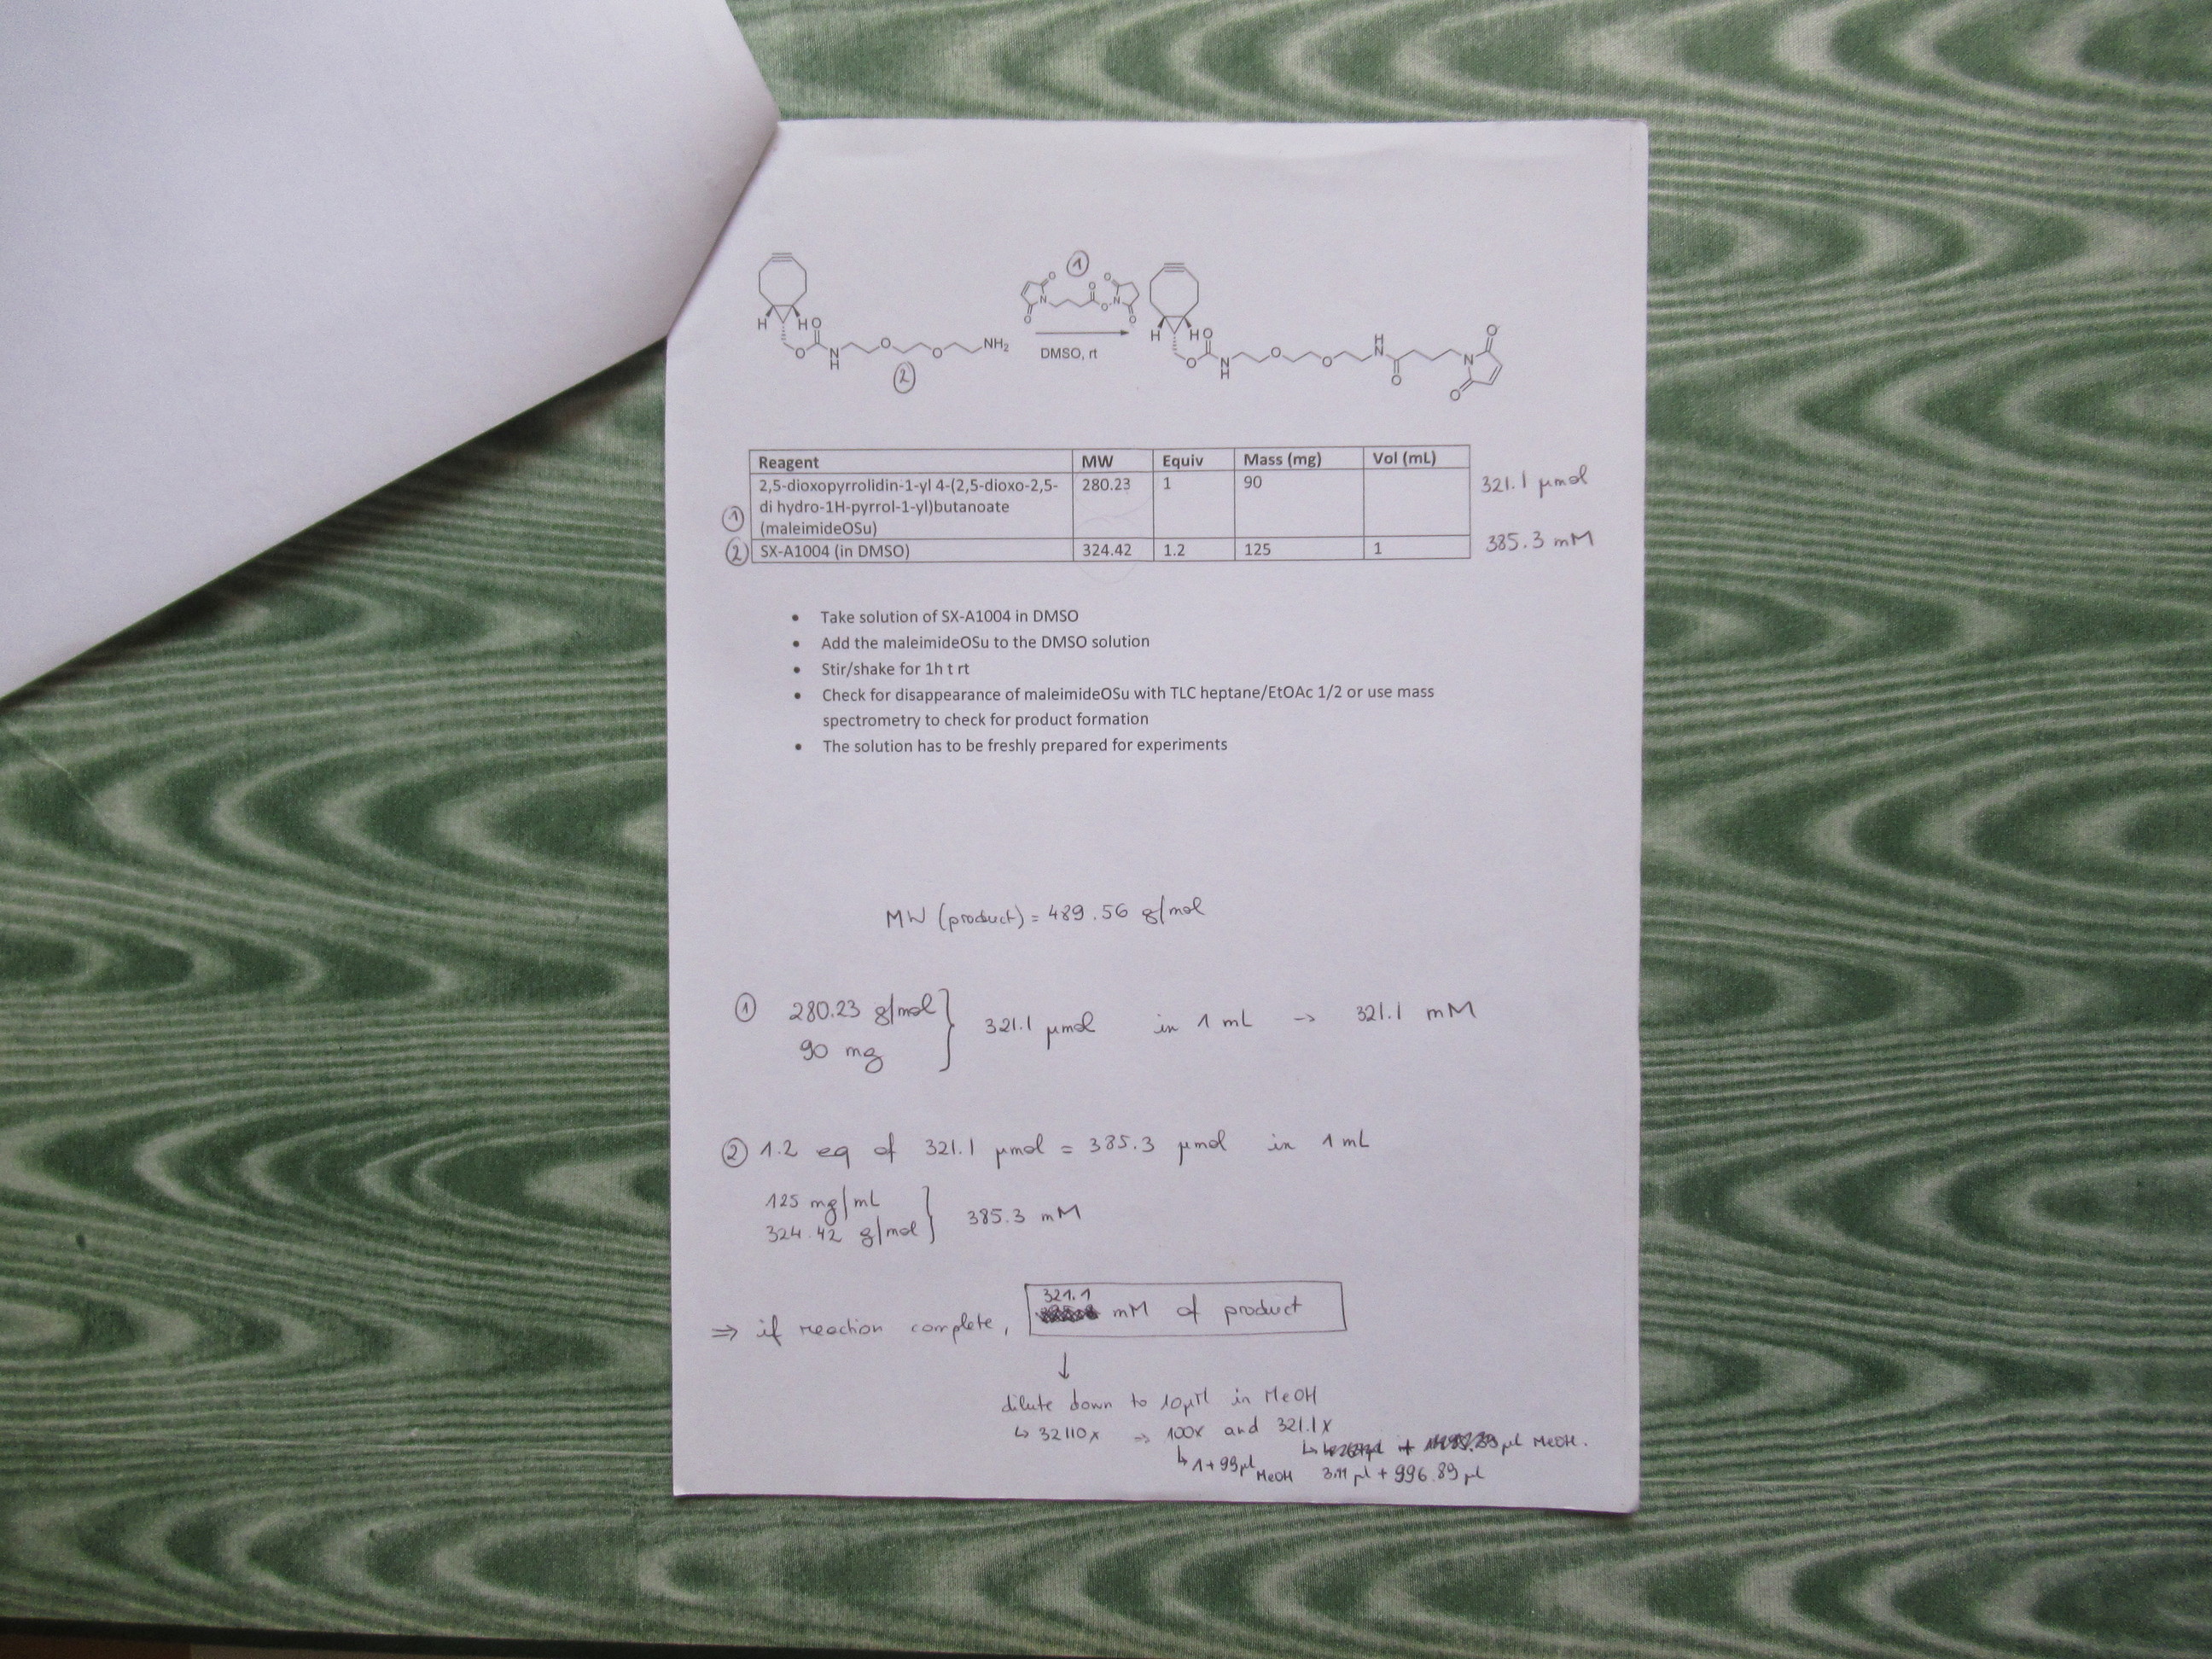 ①
H H O
O N H O O NH₂
②
O N O O O O N O
DMSO, rt
H H O
O N H O O H N O N O O
Reagent MW Equiv Mass (mg) Vol (mL)
2,5-dioxopyrrolidin-1-yl 4-(2,5-dioxo-2,5- 280.23 1 90 321.1 µmol
di hydro-1H-pyrrol-1-yl)butanoate
① (maleimideOSu)
② SX-A1004 (in DMSO) 324.42 1.2 125 1 385.3 mM
• Take solution of SX-A1004 in DMSO
• Add the maleimideOSu to the DMSO solution
• Stir/shake for 1h t rt
• Check for disappearance of maleimideOSu with TLC heptane/EtOAc 1/2 or use mass
spectrometry to check for product formation
• The solution has to be freshly prepared for experiments
MW (product) = 489.56 g/mol
① 280.23 g/mol } 321.1 µmol in 1 mL → 321.1 mM
90 mg
② 1.2 eq of 321.1 µmol = 385.3 µmol in 1 mL
125 mg/mL } 385.3 mM
324.42 g/mol
⇒ if reaction complete, 321.1 mM of product
↓
dilute down to 10µM in MeOH
↳ 32110x ⇒ 100x and 321.1x
↳ + µl MeOH.
↳ 1+99µl MeOH 3.11 µl + 996.89 µl